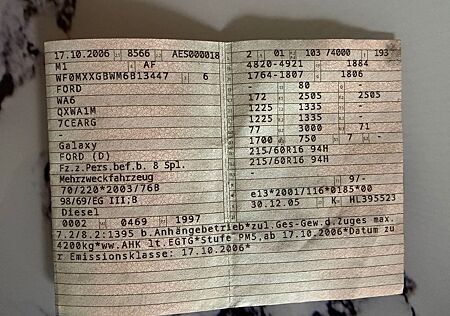 17.10.2006 8566 AES000018
M1 AF
WF0MXXGBWM6B13447 6
FORD
WA6
QXWA1M
7CEARG
-
Galaxy
FORD (D)
Fz.z.Pers.bef.b. 8 Spl.
Mehrzweckfahrzeug
70/220*2003/76B
98/69/EG III;B
Diesel
0002 0469 1997
2 01 103 /4000 193
4820-4921 1884
1764-1807 1806
- 80 -
172 2505 2505
1225 1335 -
1225 1335 -
77 3000 71
1700 750 7 -
215/60R16 94H
215/60R16 94H
-
9/-
e13*2001/116*0185*00
30.12.05 K HL395523
7.2/8.2:1395 b.Anhängebetrieb*zul.Ges-Gew.d.Zuges max.
4200kg*ww.AHK lt.EGTG*Stufe PM5,ab 17.10.2006*Datum zu
r Emissionsklasse: 17.10.2006*